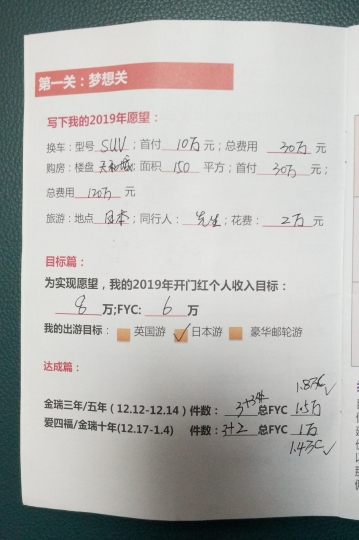 第一关：梦想关
写下我的2019年愿望：
换车：型号 SUV ；首付 10万 元；总费用 30万 元
购房：楼盘 面积 150 平方；首付 30万 元；
总费用 120万 元
旅游：地点 日本 ；同行人： 先生 ；花费： 2万 元
目标篇：
为实现愿望，我的2019年开门红个人收入目标：
8 万;FYC: 6 万
我的出游目标： 英国游 ✓日本游 豪华邮轮游
达成篇：
1.83C✓
金瑞三年/五年（12.12-12.14）件数： 3+3 总FYC 1.5万
爱四福/金瑞十年(12.17-1.4) 件数： 3+2 总FYC 1万
1.43C✓